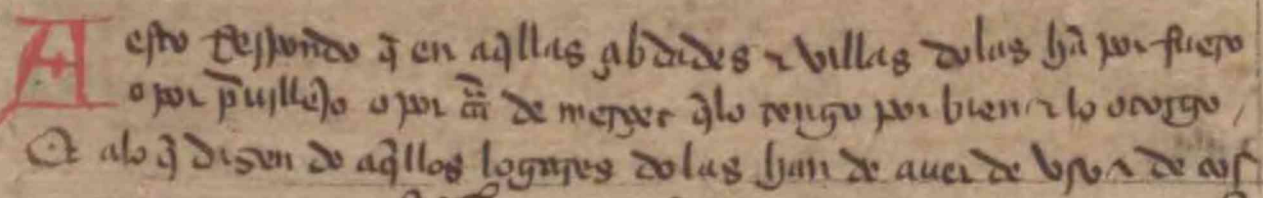 A esto Respondo q̃ en aq̃llas çibdades ⁊ villas dolas hã por fuero
o por p̃uillejo o por cr̃a de merçet q̃ lo tengo por bien ⁊ lo otorgo /
Et alo q̃ disen de aq̃llos logares dolas han de auer de vso ⁊ de cos